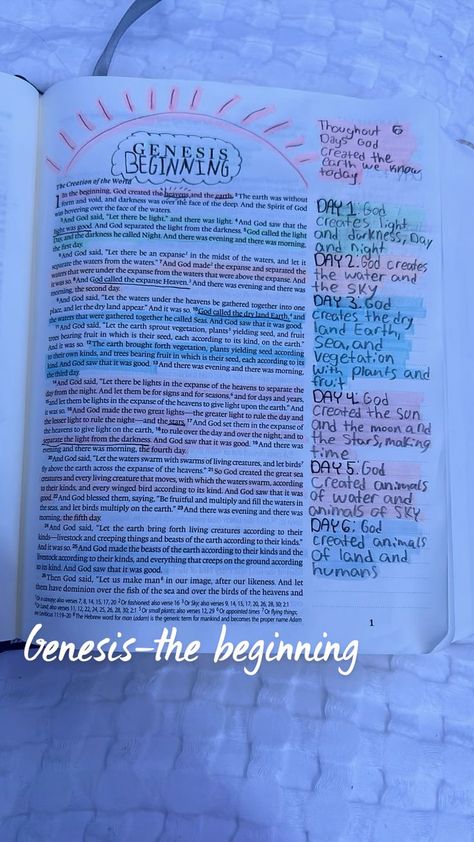 GENESIS
BEGINNING
The Creation of the World
1 In the beginning, God created the heavens and the earth. 2 The earth was without
form and void, and darkness was over the face of the deep. And the Spirit of God
was hovering over the face of the waters.
3 And God said, "Let there be light," and there was light. 4 And God saw that the
light was good. And God separated the light from the darkness. 5 God called the light
Day, and the darkness he called Night. And there was evening and there was morning,
the first day.
6 And God said, "Let there be an expanse1 in the midst of the waters, and let it
separate the waters from the waters." 7 And God made2 the expanse and separated the
waters that were under the expanse from the waters that were above the expanse. And
it was so. 8 And God called the expanse Heaven.3 And there was evening and there was
morning, the second day.
9 And God said, "Let the waters under the heavens be gathered together into one
place, and let the dry land appear." And it was so. 10 God called the dry land Earth,4 and
the waters that were gathered together he called Seas. And God saw that it was good.
11 And God said, "Let the earth sprout vegetation, plants5 yielding seed, and fruit
trees bearing fruit in which is their seed, each according to its kind, on the earth."
And it was so. 12 The earth brought forth vegetation, plants yielding seed according
to their own kinds, and trees bearing fruit in which is their seed, each according to its
kind. And God saw that it was good. 13 And there was evening and there was morning,
the third day.
14 And God said, "Let there be lights in the expanse of the heavens to separate the
day from the night. And let them be for signs and for seasons,6 and for days and years,
15 and let them be lights in the expanse of the heavens to give light upon the earth." And
it was so. 16 And God made the two great lights—the greater light to rule the day and
the lesser light to rule the night—and the stars. 17 And God set them in the expanse
of the heavens to give light on the earth, 18 to rule over the day and over the night, and to
separate the light from the darkness. And God saw that it was good. 19 And there was
evening and there was morning, the fourth day.
20 And God said, "Let the waters swarm with swarms of living creatures, and let birds7
fly above the earth across the expanse of the heavens." 21 So God created the great sea
creatures and every living creature that moves, with which the waters swarm, according
to their kinds, and every winged bird according to its kind. And God saw that it was
good. 22 And God blessed them, saying, "Be fruitful and multiply and fill the waters in
the seas, and let birds multiply on the earth." 23 And there was evening and there was
morning, the fifth day.
24 And God said, "Let the earth bring forth living creatures according to their
kinds—livestock and creeping things and beasts of the earth according to their kinds."
And it was so. 25 And God made the beasts of the earth according to their kinds and the
livestock according to their kinds, and everything that creeps on the ground according
to its kind. And God saw that it was good.
26 Then God said, "Let us make man8 in our image, after our likeness. And let
them have dominion over the fish of the sea and over the birds of the heavens and
1 Or a canopy; also verses 7, 8, 14, 15, 17, 20 2 Or fashioned; also verse 16 3 Or Sky; also verses 9, 14, 15, 17, 20, 26, 28, 30; 2:1
4 Or Land; also verses 11, 12, 22, 24, 25, 26, 28, 30; 2:1 5 Or small plants; also verses 12, 29 6 Or appointed times 7 Or flying things;
see Leviticus 11:19–20 8 The Hebrew word for man (adam) is the generic term for mankind and becomes the proper name Adam
Thoughout 6
Days God
created the
Earth we know
today.
DAY 1: God
creates light
and darkness, Day
and Night
DAY 2: God creates
the water and
the SKY
DAY 3: God
creates the dry
land Earth,
Sea, and
vegetation
with plants and
fruit
DAY 4: God
Created the Sun
and the moon and
the Stars, making
time
DAY 5: God
Created animals
of water and
animals of SKY
DAY 6: God
created animals
of land and
humans
1
Genesis-the beginning